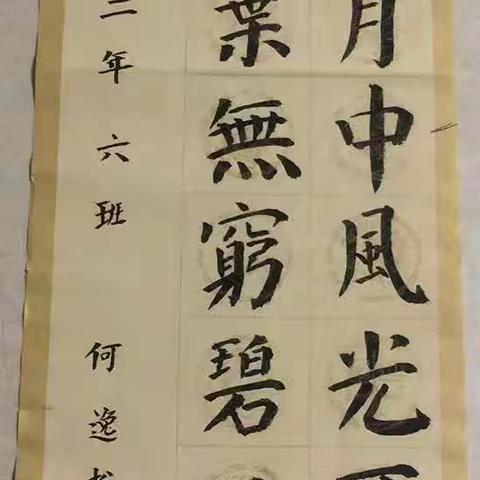 月中風光
葉無窮碧
二年六班 何逸書